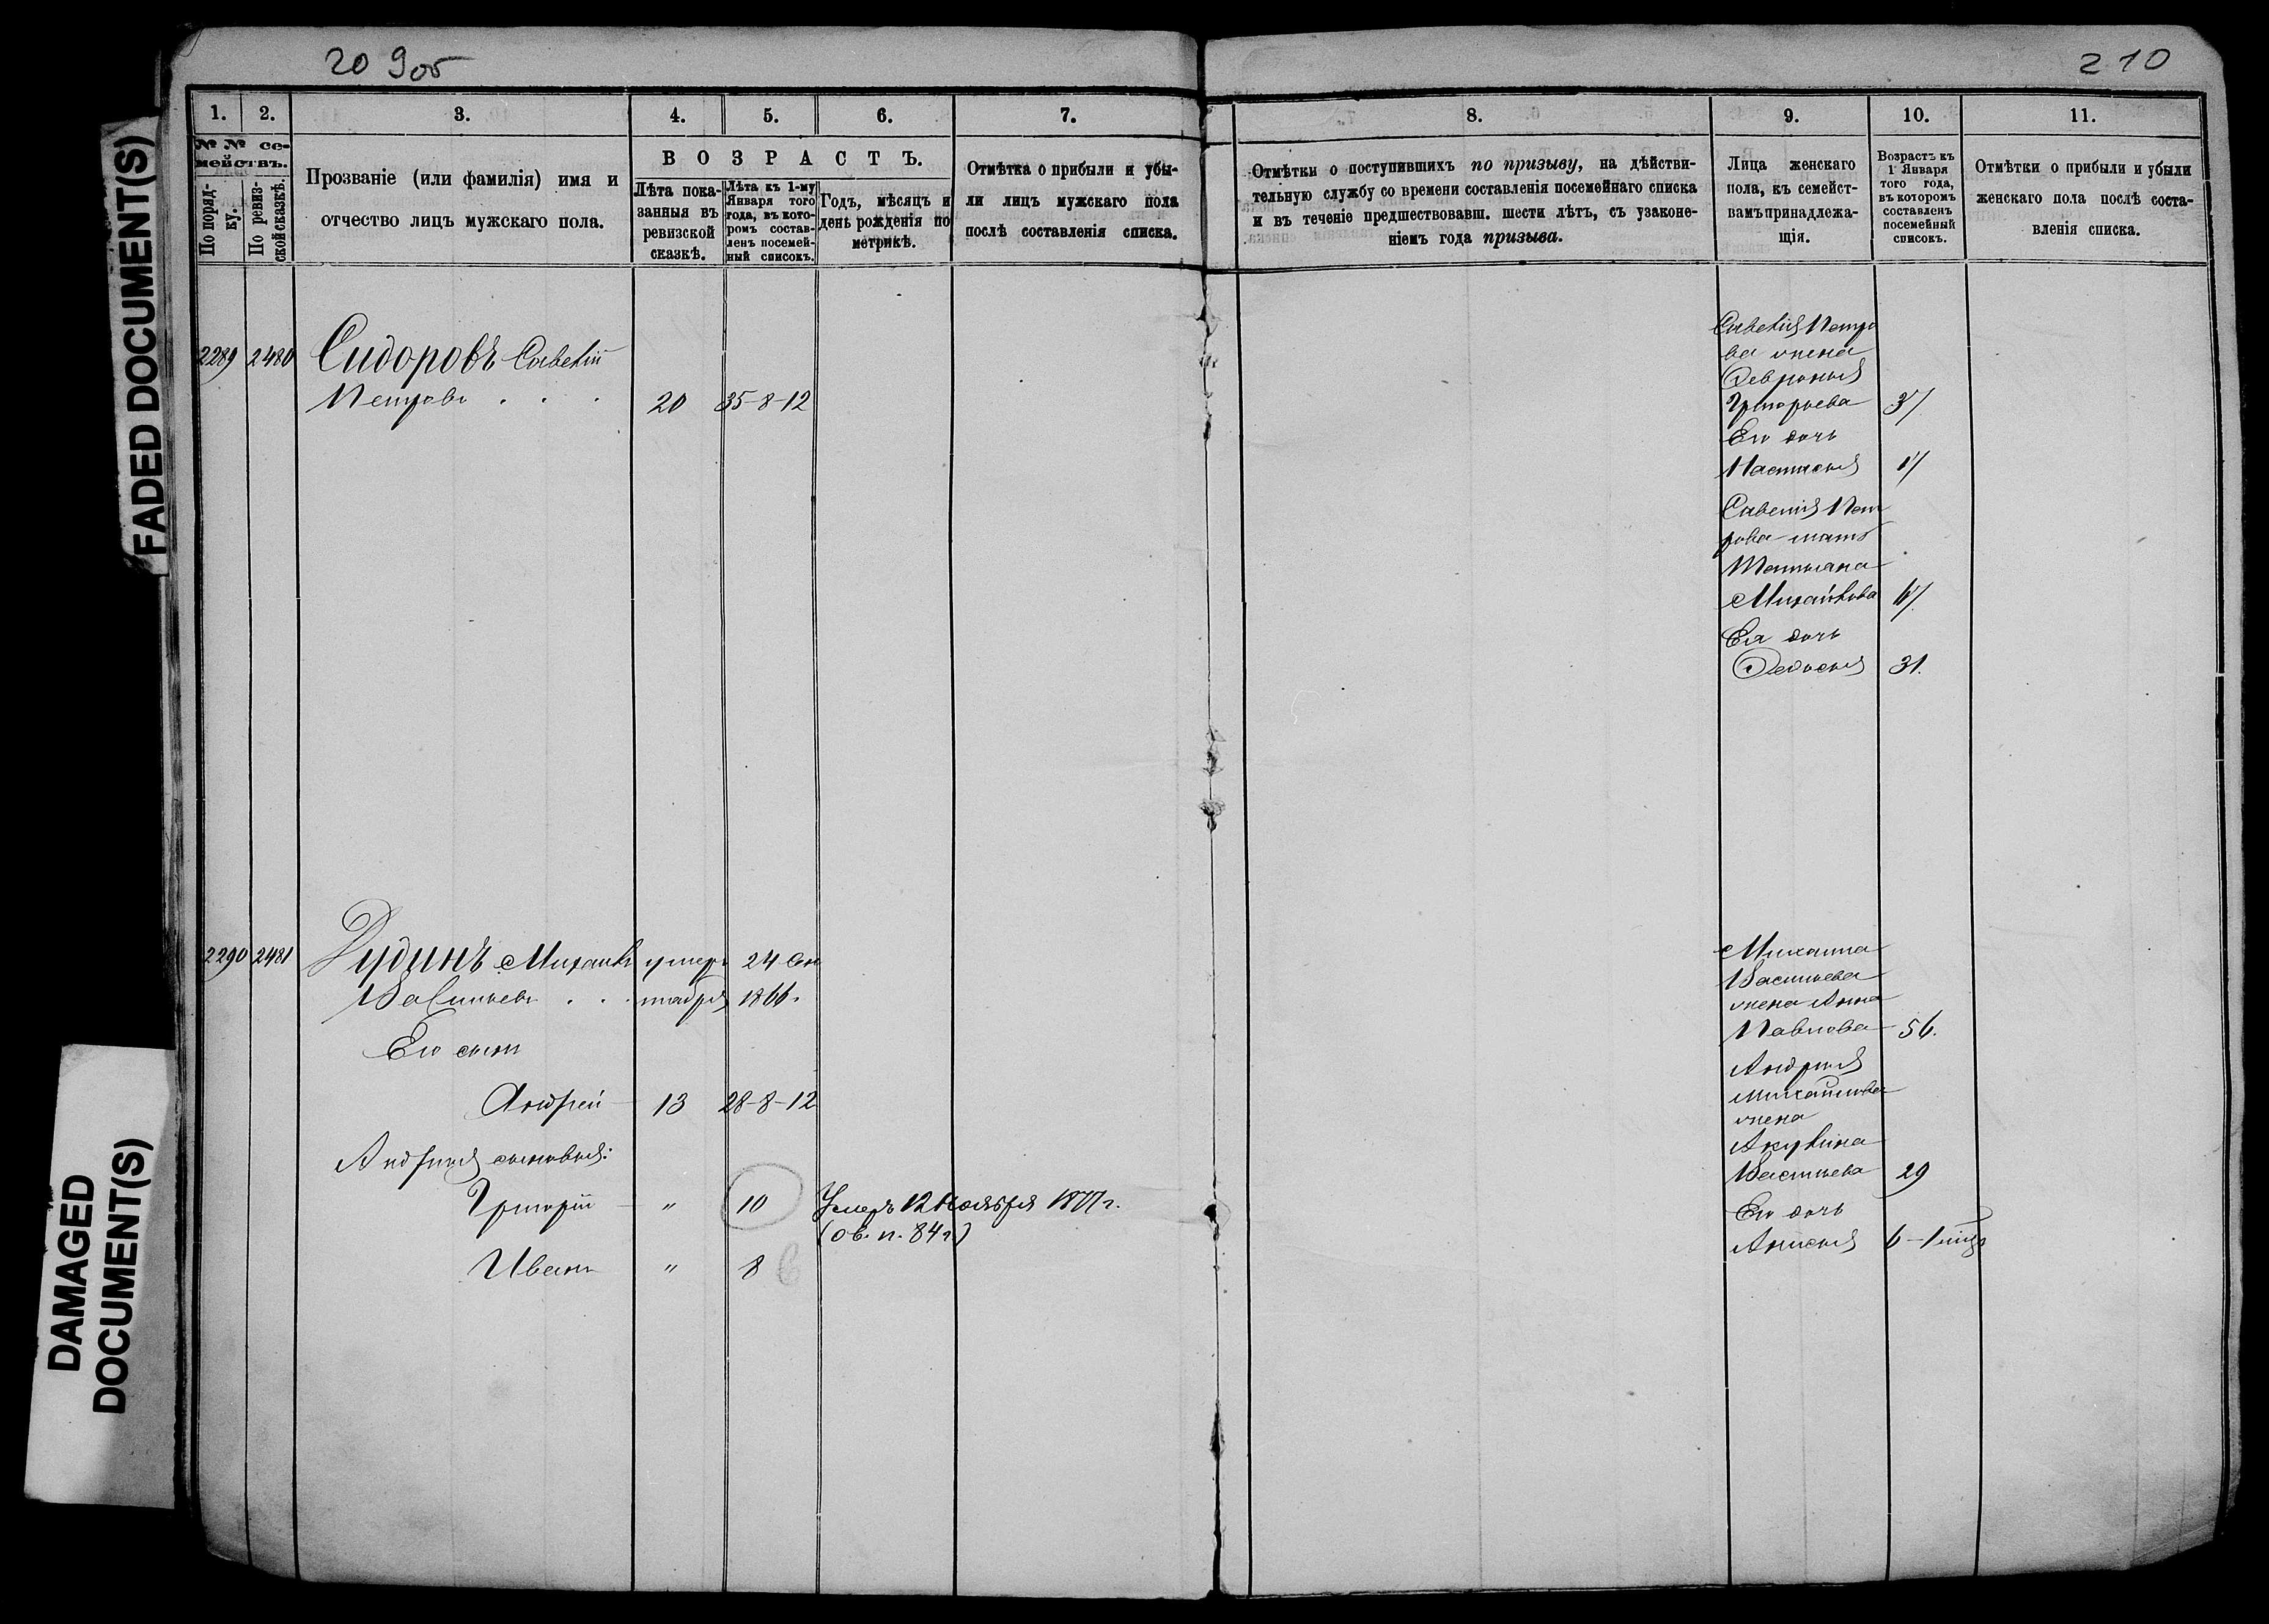 20 9об
210
FADED DOCUMENT(S)
DAMAGED
DOCUMENT(S)
1.
2.
3.
4.
5.
6.
7.
№ № се-
мействъ.
По поряд-
ку.
По ревиз-
ской сказкѣ.
Прозваніе (или фамилія) имя и
отчество лицъ мужскаго пола.
ВОЗРАСТЪ.
Лѣта пока-
занныя въ
ревизской
сказкѣ.
Лѣта къ 1-му
Января того
года, въ кото-
ромъ состав-
ленъ посемей-
ный списокъ.
Годъ, мѣсяцъ и
день рожденія по
метрикѣ.
Отмѣтка о прибыли и убы-
ли лицъ мужскаго пола
послѣ составленія списка.
2289 2480 Сидоровъ Савелій
Петровъ . . . 20 35-8-12
2290 2481 Дудинъ Михаилъ умеръ 24 Сен
Васильевъ . . . тября 1866.
Его сынъ
Андрей 13 28-8-12
Андрея сыновья:
Григорій " 10 Умеръ 12 Ноября 1877 г.
(Об. п. 84 г.)
Иванъ " 8 6
8.
9.
10.
11.
Отмѣтки о поступившихъ по призыву, на дѣйстви-
тельную службу со времени составленія посемейнаго списка
и въ теченіе предшествовавш. шести лѣтъ, съ узаконе-
ніемъ года призыва.
Лица женскаго
пола, къ семейст-
вамъ принадлежа-
щія.
Возрастъ къ
1 Января
того года,
въ которомъ
составленъ
посемейный
списокъ.
Отмѣтки о прибыли и убыли
женскаго пола послѣ соста-
вленія списка.
Савелія Петро
ва жена
Григорьева 37
Его дочь
Настасья 17
Савелія Пет
рова мать
Татьяна
Михайлова 67
Ея дочь
Федосья 31.
Михаила
Васильева
жена Анна
Павлова 56.
Андрея
Михайлова
жена
Акулина
Васильева 29
Его дочь
Анисья 6-1 мцъ